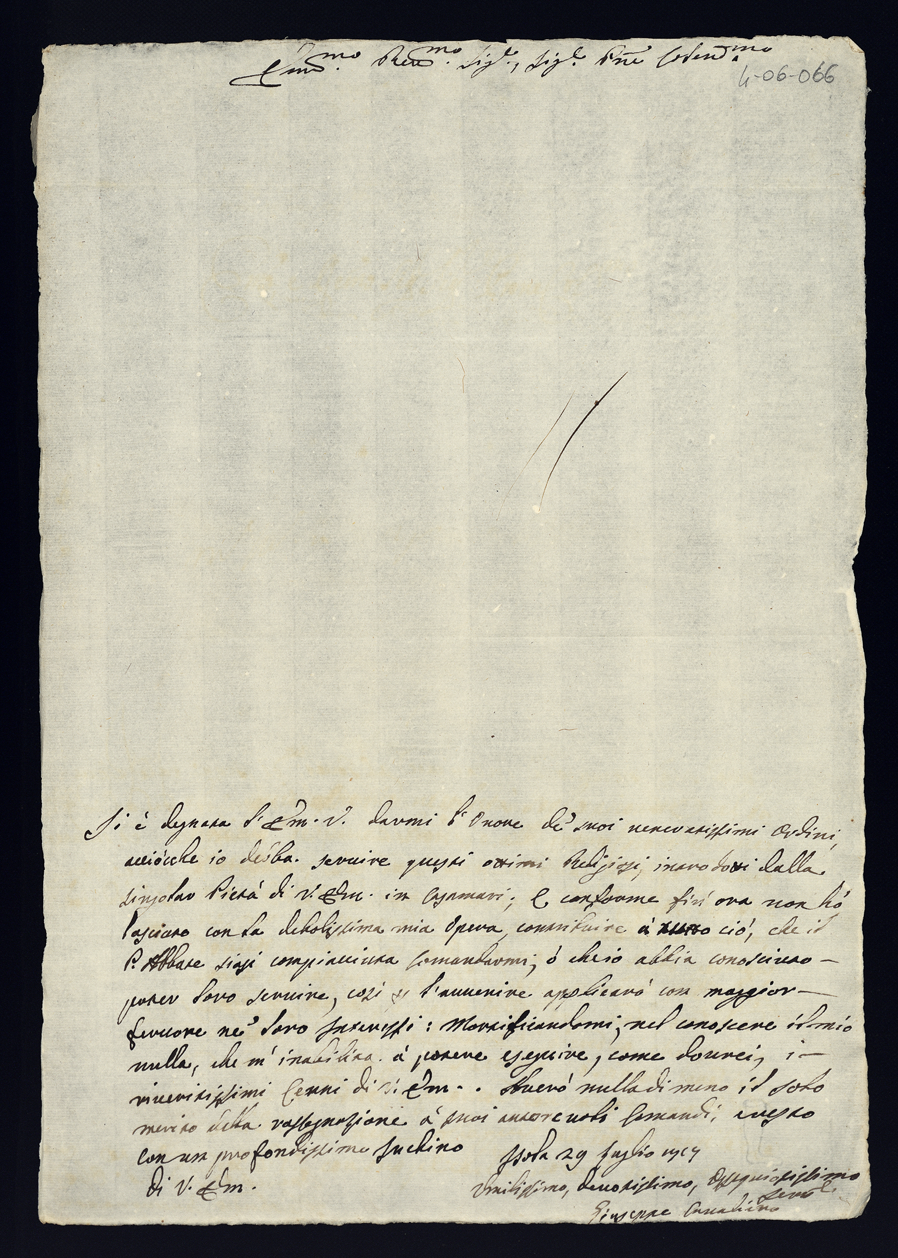 Em.mo Rev.mo Sig.e, Sig.e Pñe Colend.mo
4-06-066
Si è degnata l'Em. V. darmi l'onore de' suoi veneratissimi Ordini,
acciòcche io debba servire questi ottimi Religiosi, introdotti dalla
singolar Pietà di V. Em. in Casamari; E conforme fin' ora non hò
lasciato con la debolissima mia Opera contribuire à tutto ciò, che il
P. Abbate siasi compiaciuta Comandarmi, ò che io abbia conosciuto
poter loro servire, così p l'avvenire applicarò con maggior
fervore ne' loro Interessi: Mortificandomi, nel conoscere il mio
nulla, che m' inabilita à potere eseguire, come dovrei, i
riveritissimi Cenni di V. Em. Averò nulladimeno il solo
merito della rassegnazione à suoi autorevoli Comandi; e resto
con un profondissimo Inchino Isola 29 Luglio 1717
di V. Em.
Umilissimo, devotissimo, Ossequiosissimo
Serv.e
Giuseppe